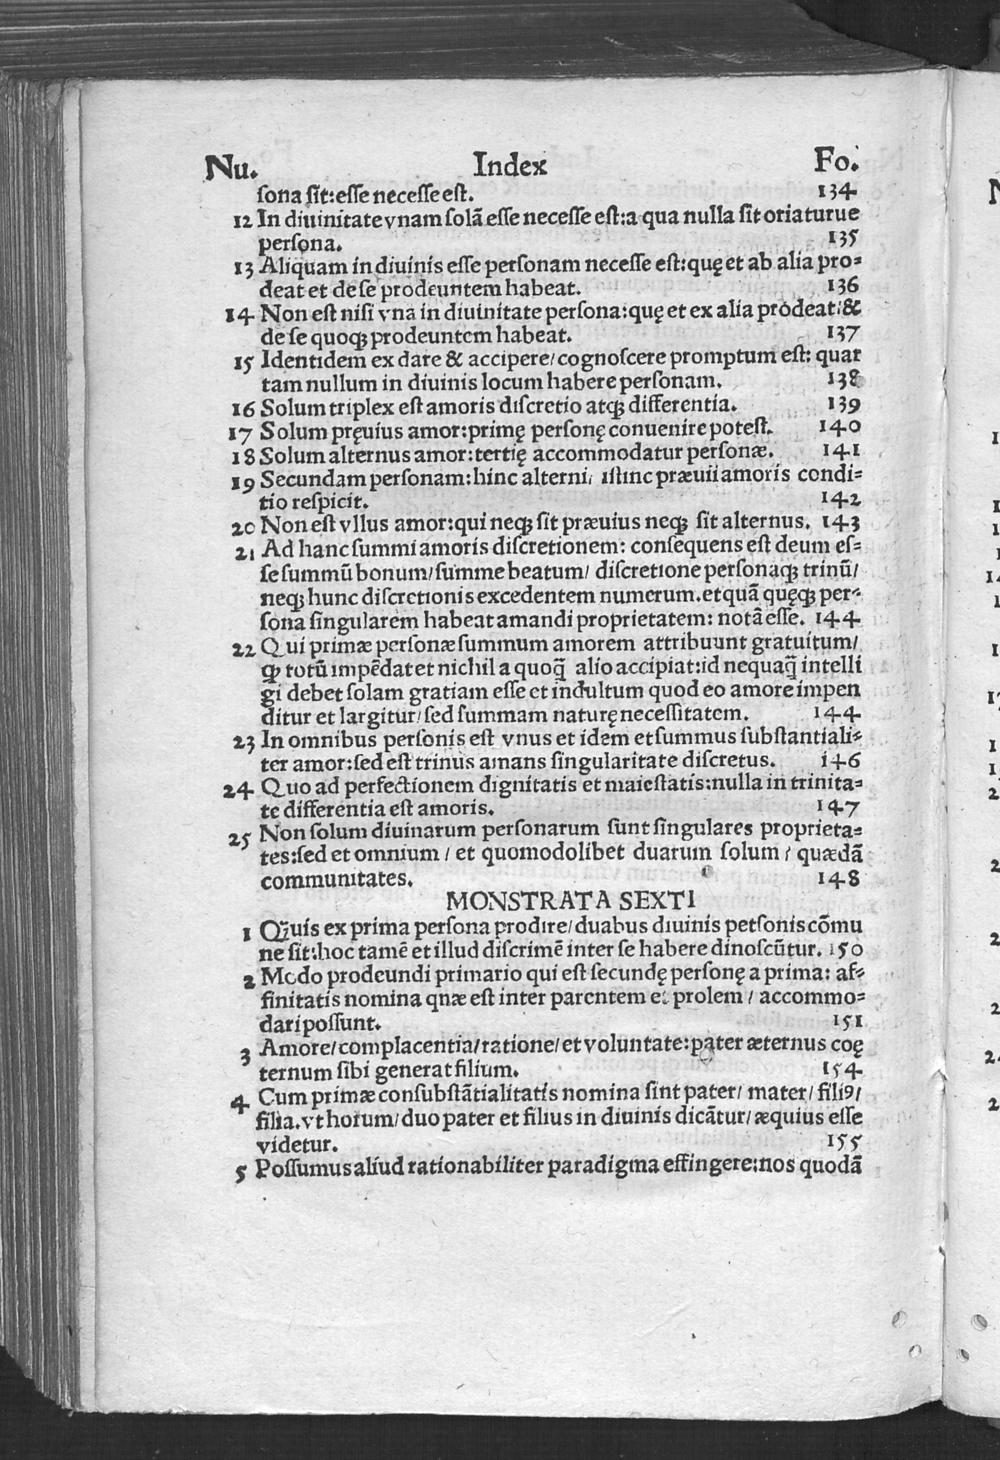 Nu. Index Fo.
ſona ſit:eſſe neceſſe eſt. 134
12 In diuinitate vnam ſolã eſſe neceſſe eſt:a qua nulla ſit oriaturue
perſona. 135
13 Aliquam in diuinis eſſe perſonam neceſſe eſt:quę et ab alia pro=
deat et de ſe prodeuntem habeat. 136
14 Non eſt niſi vna in diuinitate perſona:quę et ex alia prodeat/&
de ſe quoqꝫ prodeuntem habeat. 137
15 Identidem ex dare & accipere/cognoſcere promptum eſt: quar
tam nullum in diuinis locum habere perſonam. 138
16 Solum triplex eſt amoris diſcretio atqꝫ differentia. 139
17 Solum pręuius amor:primę perſonę conuenire poteſt. 140
18 Solum alternus amor:tertię accommodatur perſonæ. 141
19 Secundam perſonam:hinc alterni/ iſtinc præuii amoris condi=
tio reſpicit. 142
20 Non eſt vllus amor:qui neqꝫ ſit præuius neqꝫ ſit alternus. 143
21 Ad hanc ſummi amoris diſcretionem: conſequens eſt deum eſ=
ſe ſummũ bonum/ſumme beatum/ diſcretione perſonaqꝫ trinũ/
neqꝫ hunc diſcretionis excedentem numerum.et quã quęqꝫ per=
ſona ſingularem habeat amandi proprietatem: notã eſſe. 144
22 Qui primæ perſonæ ſummum amorem attribuunt gratuitum/
ꝙ totũ impẽdat et nichil a quoq̃ alio accipiat:id nequaq̃ intelli
gi debet ſolam gratiam eſſe et indultum quod eo amore impen
ditur et largitur/ſed ſummam naturę neceſſitatem. 144
23 In omnibus perſonis eſt vnus et idem et ſummus ſubſtantiali=
ter amor:ſed eſt trinus amans ſingularitate diſcretus. 146
24 Quo ad perfectionem dignitatis et maieſtatis:nulla in trinita=
te differentia eſt amoris. 147
25 Non ſolum diuinarum perſonarum ſunt ſingulares proprieta=
tes:ſed et omnium / et quomodolibet duarum ſolum / quædã
communitates. 148
MONSTRATA SEXTI
1 Q̃uis ex prima perſona prodire/duabus diuinis petſonis cõmu
ne ſit:hoc tamẽ et illud diſcrimẽ inter ſe habere dinoſcũtur. 150
2 Modo prodeundi primario qui eſt ſecundę perſonę a prima: af=
finitatis nomina qnæ eſt inter parentem et prolem / accommo=
dari poſſunt. 151
3 Amore/complacentia/ratione/et voluntate:pater æternus coę
ternum ſibi generat filium. 154
4 Cum primæ conſubſtãtialitatis nomina ſint pater/ mater/ fili9/
filia.vt horum/duo pater et filius in diuinis dicãtur/æquius eſſe
videtur. 155
5 Poſſumus aliud rationabiliter paradigma effingere:nos quodã